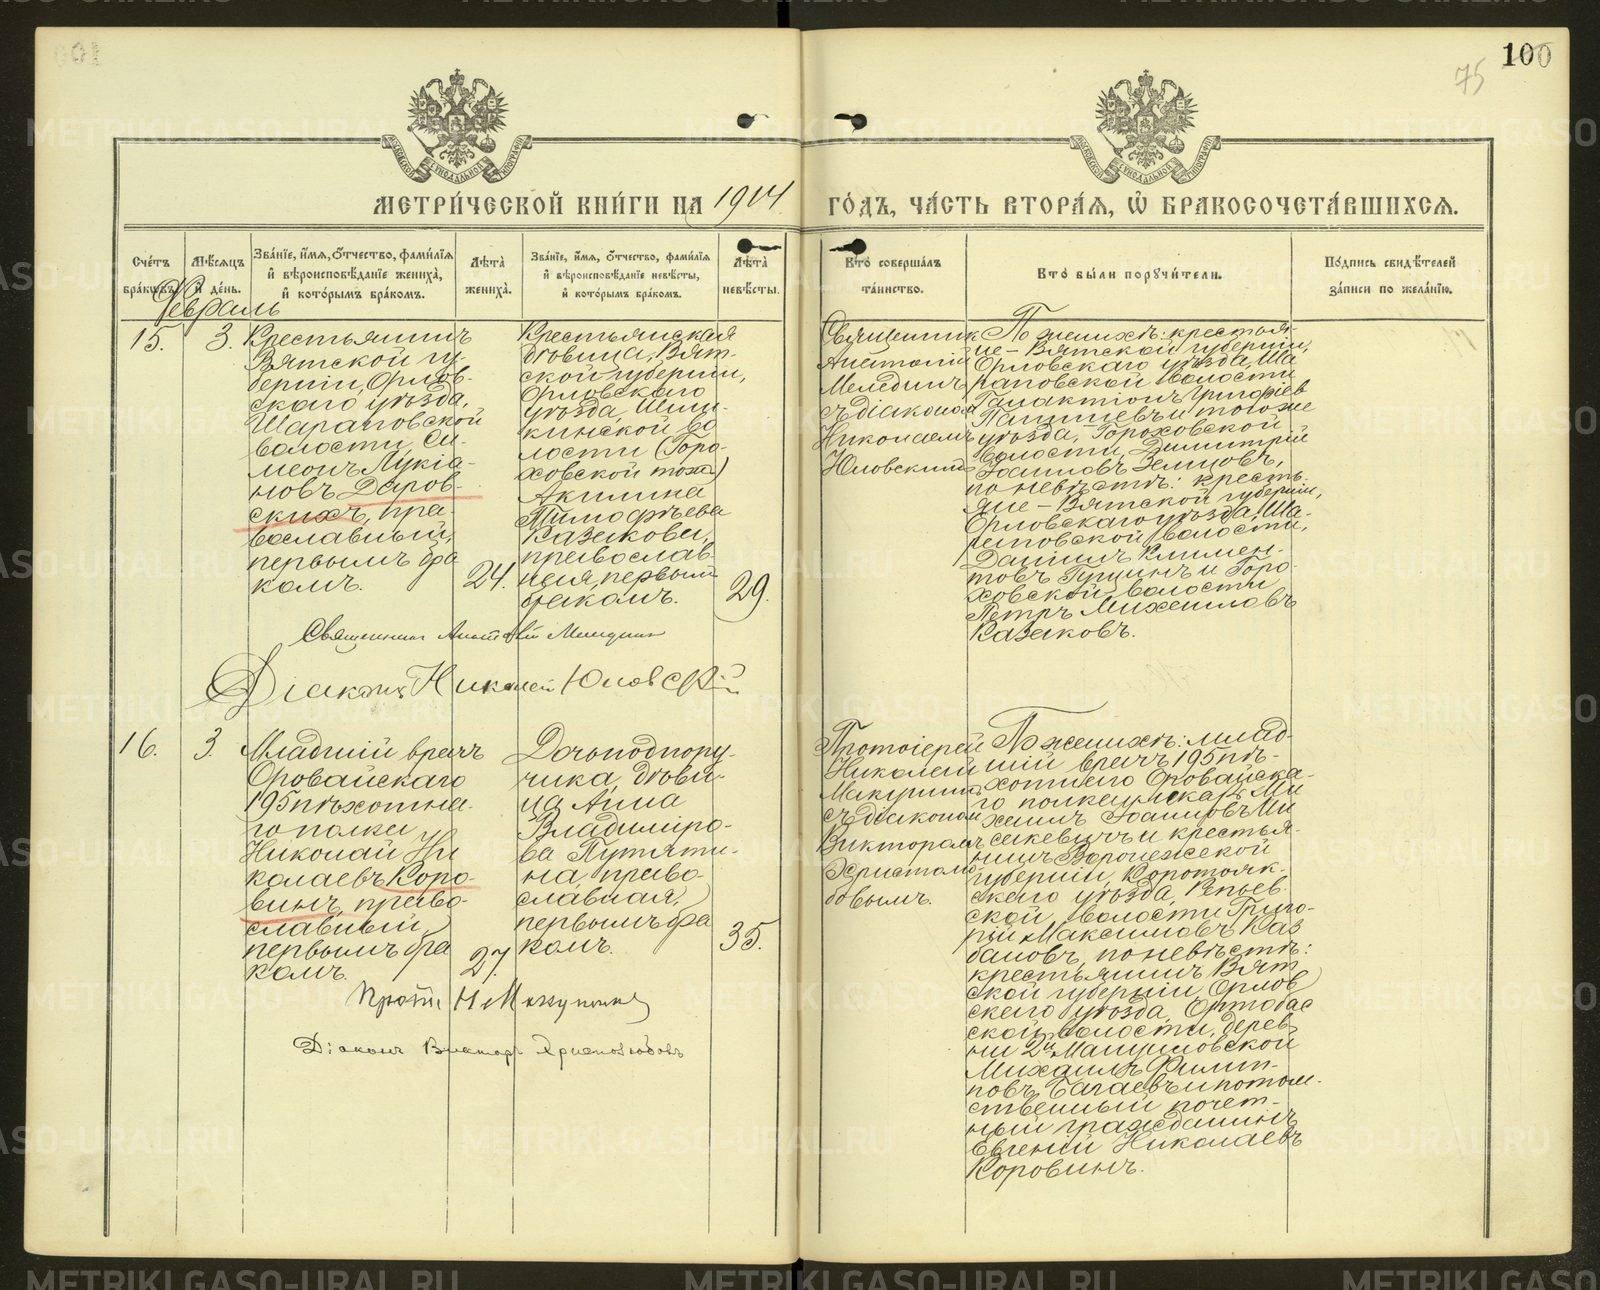 100
75
МЕТРИ́ЧЕСКОЙ КНИ́ГИ НА 1914 ГО́ДЪ, ЧА́СТЬ ВТОРА́Я, Ѿ БРАКОСОЧЕТА́ВШИХСЯ.
Сче́тъ бра́кѡвъ.
Мѣ́сяцъ и҆ де́нь.
Зва́нїе, и҆́мя, ѻ҆́тчество, фами́лїя
и҆ вѣроисповѣ́данїе жениха̀,
и҆ кото́рымъ бра́комъ.
Лѣ́та̀ жениха̀.
Зва́нїе, и҆́мя, ѻ҆́тчество, фами́лїя
и҆ вѣроисповѣ́данїе невѣ́сты,
и҆ кото́рымъ бра́комъ.
Лѣ́та̀ невѣ́сты.
Кто̀ соверша́лъ
та́инство.
Кто̀ бы́ли порꙋчи́тели.
По́дпись свидѣ́телей
за́писи по жела́нїю.
Февраль
15.
3.
Крестьянинъ
Вятской гу-
берніи, Орлов-
скаго уѣзда,
Шарановской
волости, Си-
меонъ Лукіа-
новъ Даров-
скихъ, пра-
вославный,
первымъ бра
комъ.
24.
Крестьянская
дѣвица, Вят-
ской губерніи,
Орловскаго
уѣзда,
кинской во
лости (Горо-
ховской тожъ)
Акилина
Тимофѣева
Казакова,
православ-
ная, первымъ
бракомъ.
29.
Священникъ
Анатолій
Мелединъ
съ діакономъ
Николаемъ
Юловскимъ
По женихѣ: крестья-
не - Вятской губерніи,
Орловскаго уѣзда, Ша
рановской волости
Галактіонъ Григоріев
и того же
уѣзда, Гороховской
волости Димитрій
Іоанновъ Земцовъ,
по невѣстѣ: кресть
яне - Вятской губерніи,
Орловскаго уѣзда,
волости,
Даніилъ Климен-
товъ и Горо
ховской волости
Петръ Михаиловъ
Казаковъ.
Священникъ Анатолій Меледин
Діаконъ Николай Юловскій
16.
3
Младшій врачъ
Оровайскаго
195 пѣхотна-
го полка
Николай Ни
колаевъ Коро-
винъ, право-
славный,
первымъ бра
комъ.
27.
Дочь подпору-
чика, дѣви-
ца Анна
Владиміро-
ва Путяти-
на, право-
славная,
первымъ бра
комъ.
35.
Протоіерей
Николай
Макушинъ
съ діакономъ
Викторомъ
Христолю-
бовымъ.
По женихѣ: млад-
шій врачъ 195 пѣ-
хотнаго Оровайска-
го полка лекарь Ми
хаилъ Іоанновъ Ми
сакевичъ и крестья-
нинъ Воронежской
губерніи, Коротояк-
скаго уѣзда, Репьев-
ской волости Григо-
рій Максимовъ Каз
бановъ, по невѣстѣ:
крестьянинъ Вят-
ской губерніи Орлов
скаго уѣзда,
ской волости, дерев-
ни 2й
Михаилъ Филип-
повъ Багаевъ и потом-
ственный почет-
ный гражданинъ
Евгеній Николаевъ
Коровинъ.
Прот. Н Макушинъ
Діаконъ Викторъ Христолюбовъ
METRIKI.GASO-URAL.RU